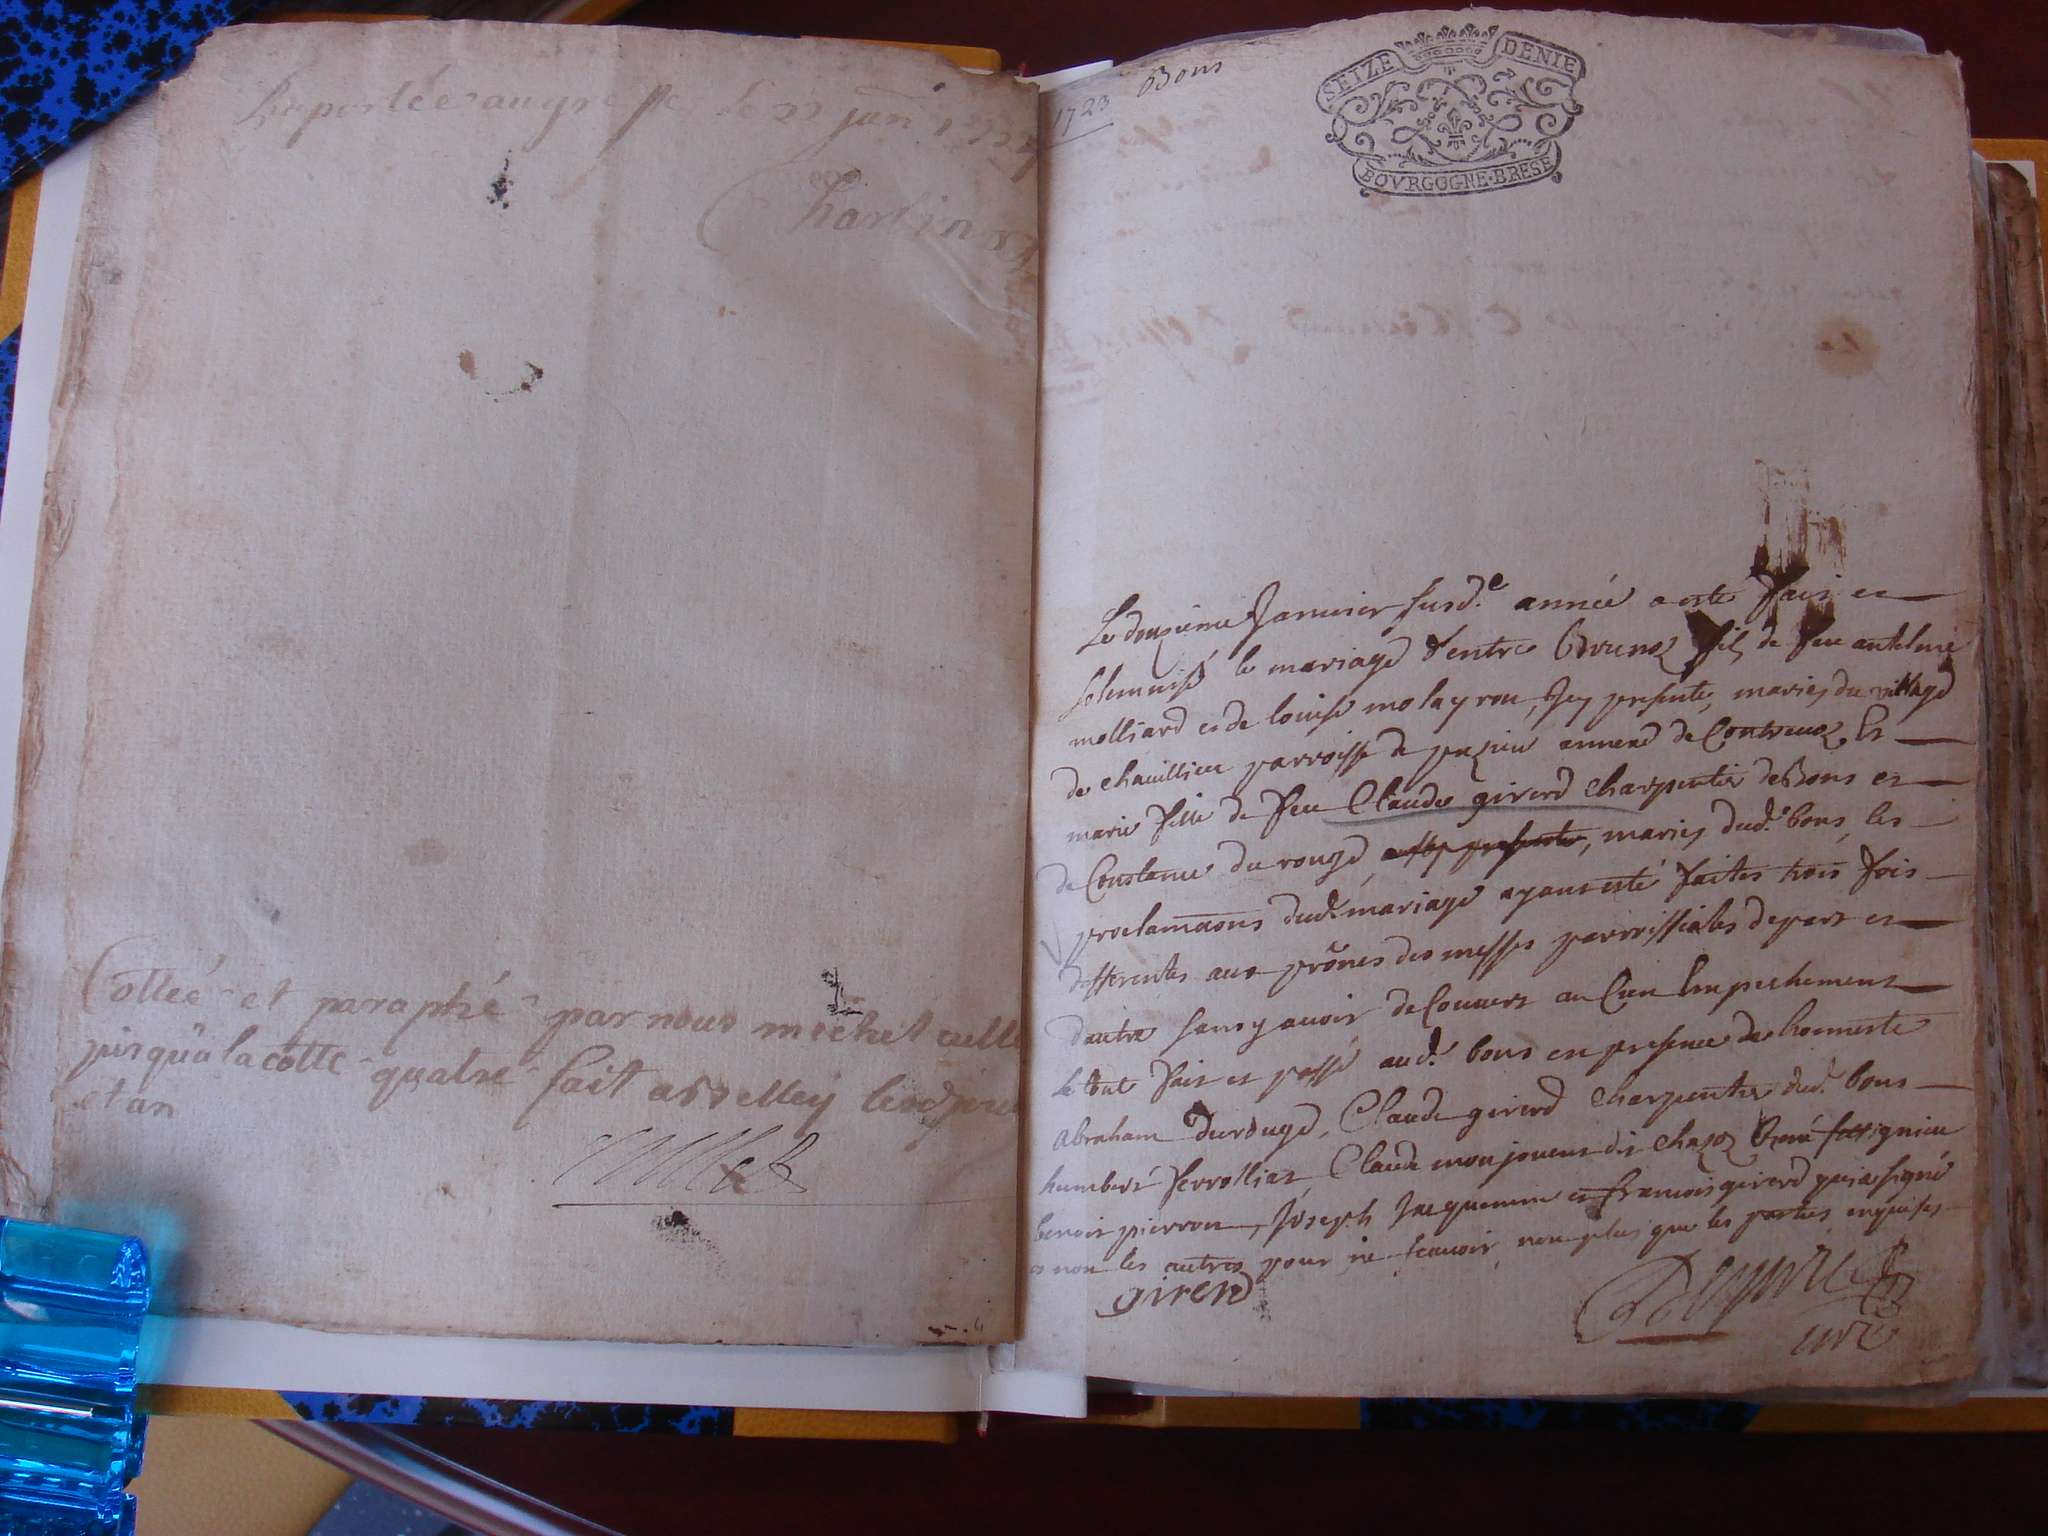 au greffe le 22 janr 1724
Cottée et paraphé par nous michel cullet
jusqu'a la cotte quatre fait a Belley lesd jour
et an
Cullet
1723 Bons
SEIZE DENIE
BOVRGOGNE·BRESE
Le douzieme Janvier susd.e année a esté fait et
solemnisé le mariage d'entre Brunoz fils de feu antelme
molliard et de louise molayron, icy presente, mariez du village
de Chavillieu parroisse de puzieu annexe de Contrevoz, Et
marie fille de feu Claude girerd charpentier de Bons et
de Constance du rouge, aussy presente, mariez dud.t bons, les
proclamaõns dud.t mariage ayant esté faites trois fois
differentes aux prônes des messes parroissiales de part et
dautre sans y avoir decouvert aucun Empechement
le tout fait et passé aud.t bons en presence de honneste
Abraham Durouge, Claude girerd charpentier dud.t bons
humbert ferrolliat Claude monjouent dit chazoz
benoit pierron, Joseph Jacquemin et francois girerd qui a signé
et non les autres pour ne scavoir, non plus que les parties enquises
girerd
curé